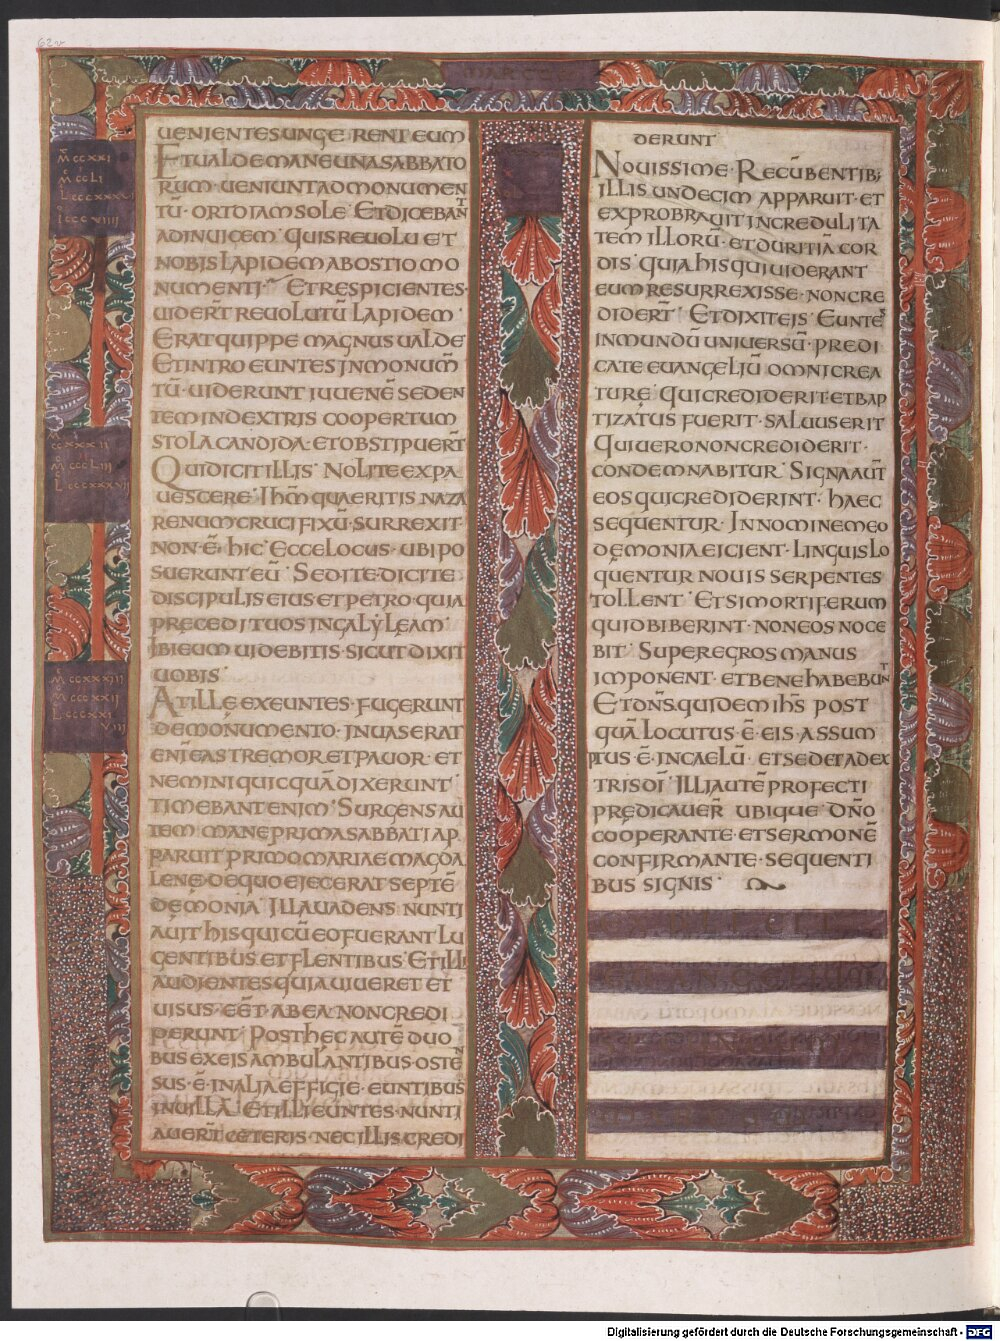 62v
MARCUS
M̊ CCXXI
M̊ CCLI
L̊ CCCXXXVI
I̊ CCCVIIII
M̊ CCXXXII
M̊ CCCLIII
L̊ CCCXXXVII
M̊ CCXXXIII
M̊ CCCXXII
L̊ CCCXXI
VIIII
UENIENTES UNGERENT EUM
ET UALDE MANE UNA SABBATO
RUM· UENIUNT AD MONUMEN
TŪ· ORTO IAM SOLE· ET DICEBANT
AD INUICEM· QUIS REUOLUET
NOBIS LAPIDEM AB OSTIO MO
NUMENTI· ET RESPICIENTES·
UIDER̄T REUOLUTŪ LAPIDEM·
ERAT QUIPPE MAGNUS UALDE
ET INTROEUNTES IN MONUM̄
TŪ· UIDERUNT IUUENĒ SEDEN
TEM IN DEXTRIS COOPERTUM
STOLA CANDIDA· ET OBSTIPUER̄T
QUI DICIT ILLIS· NOLITE EXPA
UESCERE· IHM̄ QUAERITIS NAZA
RENUM CRUCIFIXŪ· SURREXIT·
NON· Ē· HIC· ECCE LOCUS· UBI PO
SUERUNT EŪ· SED ITE· DICITE
DISCIPULIS EIUS ET PETRO· QUIA
PRĘCEDIT UOS IN GALYLEAM·
IBI EUM UIDEBITIS· SICUT DIXIT
UOBIS·
AT ILLE EXEUNTES· FUGERUNT
DE MONUMENTO· INUASERAT
ENĪ EAS TREMOR ET PAUOR· ET
NEMINI QUICQUĀ DIXERUNT·
TIMEBANT ENIM· SURGENS AU
TEM MANE PRIMA SABBATI AP
PARUIT PRIMO MARIAE MAGDA
LENE· DE QUO EJECERAT SEPTĒ
DEMONIA· ILLA UADENS NUNTI
AUIT HIS QUI CŪ EO FUERANT LU
GENTIBUS ET FLENTIBUS· ET ILLI
AUDIENTES QUIA UIUERET ET
UISUS· EĒT· AB EA NON CREDI
DERUNT· POST HEC AUTĒ DUO
BUS EX EIS AMBULANTIBUS· OSTEN
SUS· Ē· IN ALIA EFFIGIE· EUNTIBUS
IN UILLĀ· ET ILLI EUNTES· NUNTI
AUER̄T CETERIS· NEC ILLIS CREDI
DERUNT
NOUISSIME· RECŪBENTIB;
ILLIS UNDECIM APPARUIT· ET
EXPROBRAUIT INCREDULITA
TEM ILLORŪ· ET DURITIĀ COR
DIS· QUIA HIS QUI UIDERANT
EUM RESURREXISSE· NON CRE
DIDER̄T· ET DIXIT EIS· EUNTES
IN MUNDŪ UNIUERSŪ· PREDI
CATE EUANGELIŪ OMNI CREA
TURE· QUI CREDIDERIT ET BAP
TIZATUS FUERIT· SALUUS ERIT
QUI UERO NON CREDIDERIT·
CONDEMNABITUR· SIGNA AUT̄
EOS QUI CREDIDERINT· HAEC
SEQUENTUR· IN NOMINE MEO
DĘMONIA EICIENT· LINGUIS LO
QUENTUR NOUIS SERPENTES
TOLLENT· ET SI MORTIFERUM
QUID BIBERINT· NON EOS NOCE
BIT· SUPER EGROS MANUS
IMPONENT· ET BENE HABEBUNT
ET DN̄S QUIDEM IHS̄ POST
QUĀ LOCUTUS· Ē· EIS· ASSUM
PTUS· Ē· IN CAELŪ· ET SEDET A DEX
TRIS DĪ· ILLI AUTĒ PROFECTI
PRĘDICAUER̄ UBIQUE· DÑO
COOPERANTE· ET SERMONĒ
CONFIRMANTE· SEQUENTI
BUS SIGNIS·
Digitalisierung gefördert durch die Deutsche Forschungsgemeinschaft - DFG